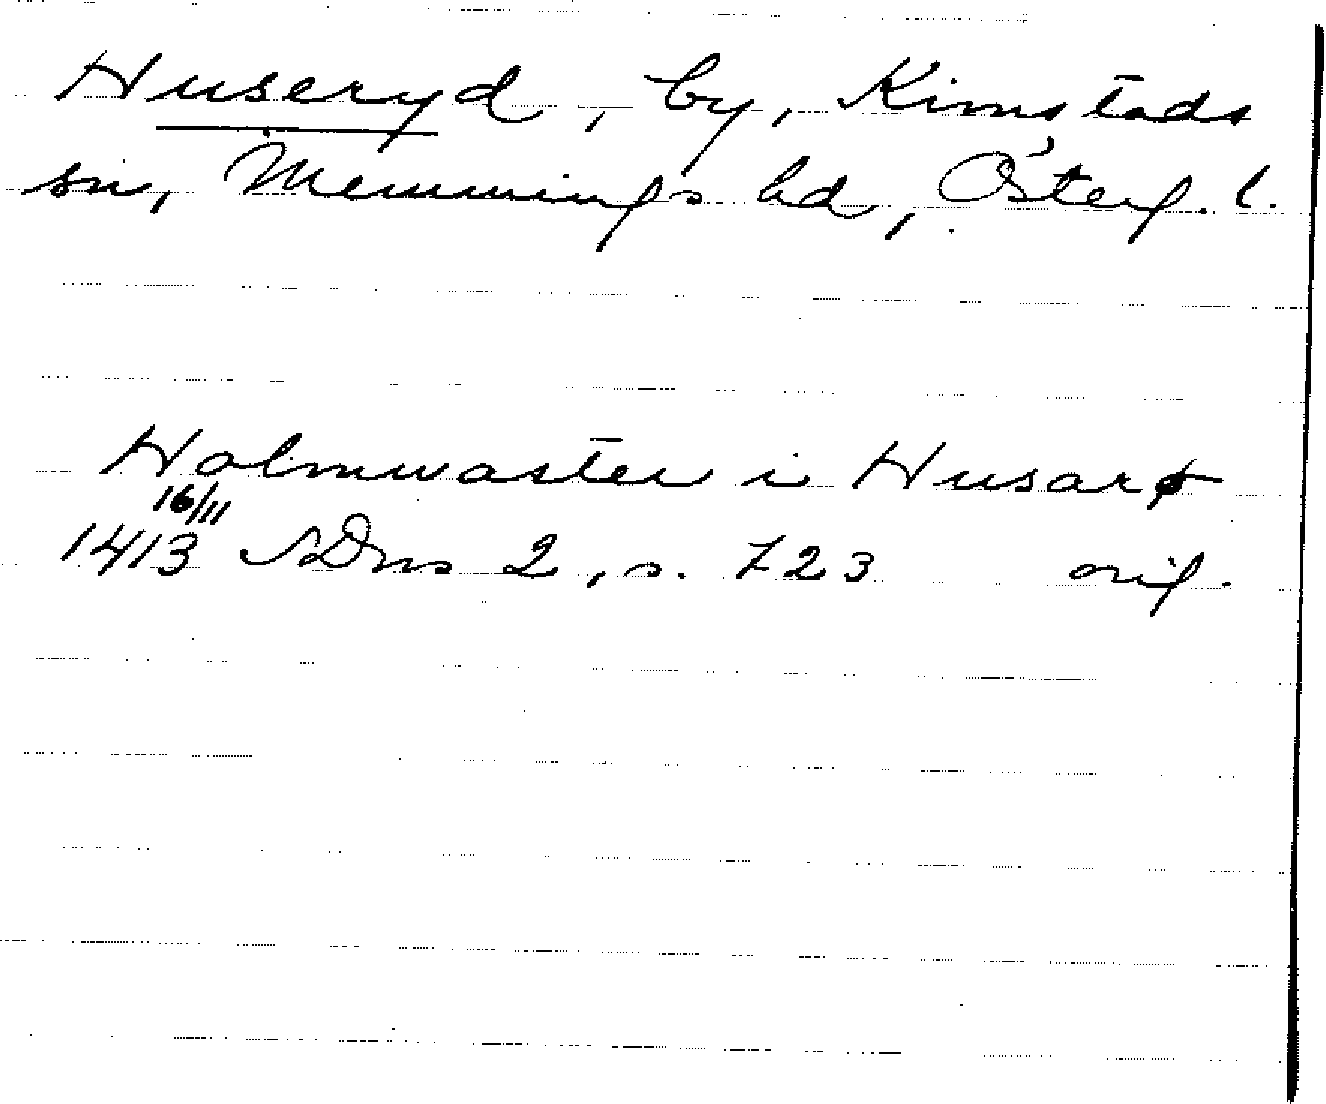 Huseryd, by, Kimstads
sn, Memmings hd, Österg. l.
Holmwaster i Husarø
16/11
1413 SDns 2, s. 723 orig.